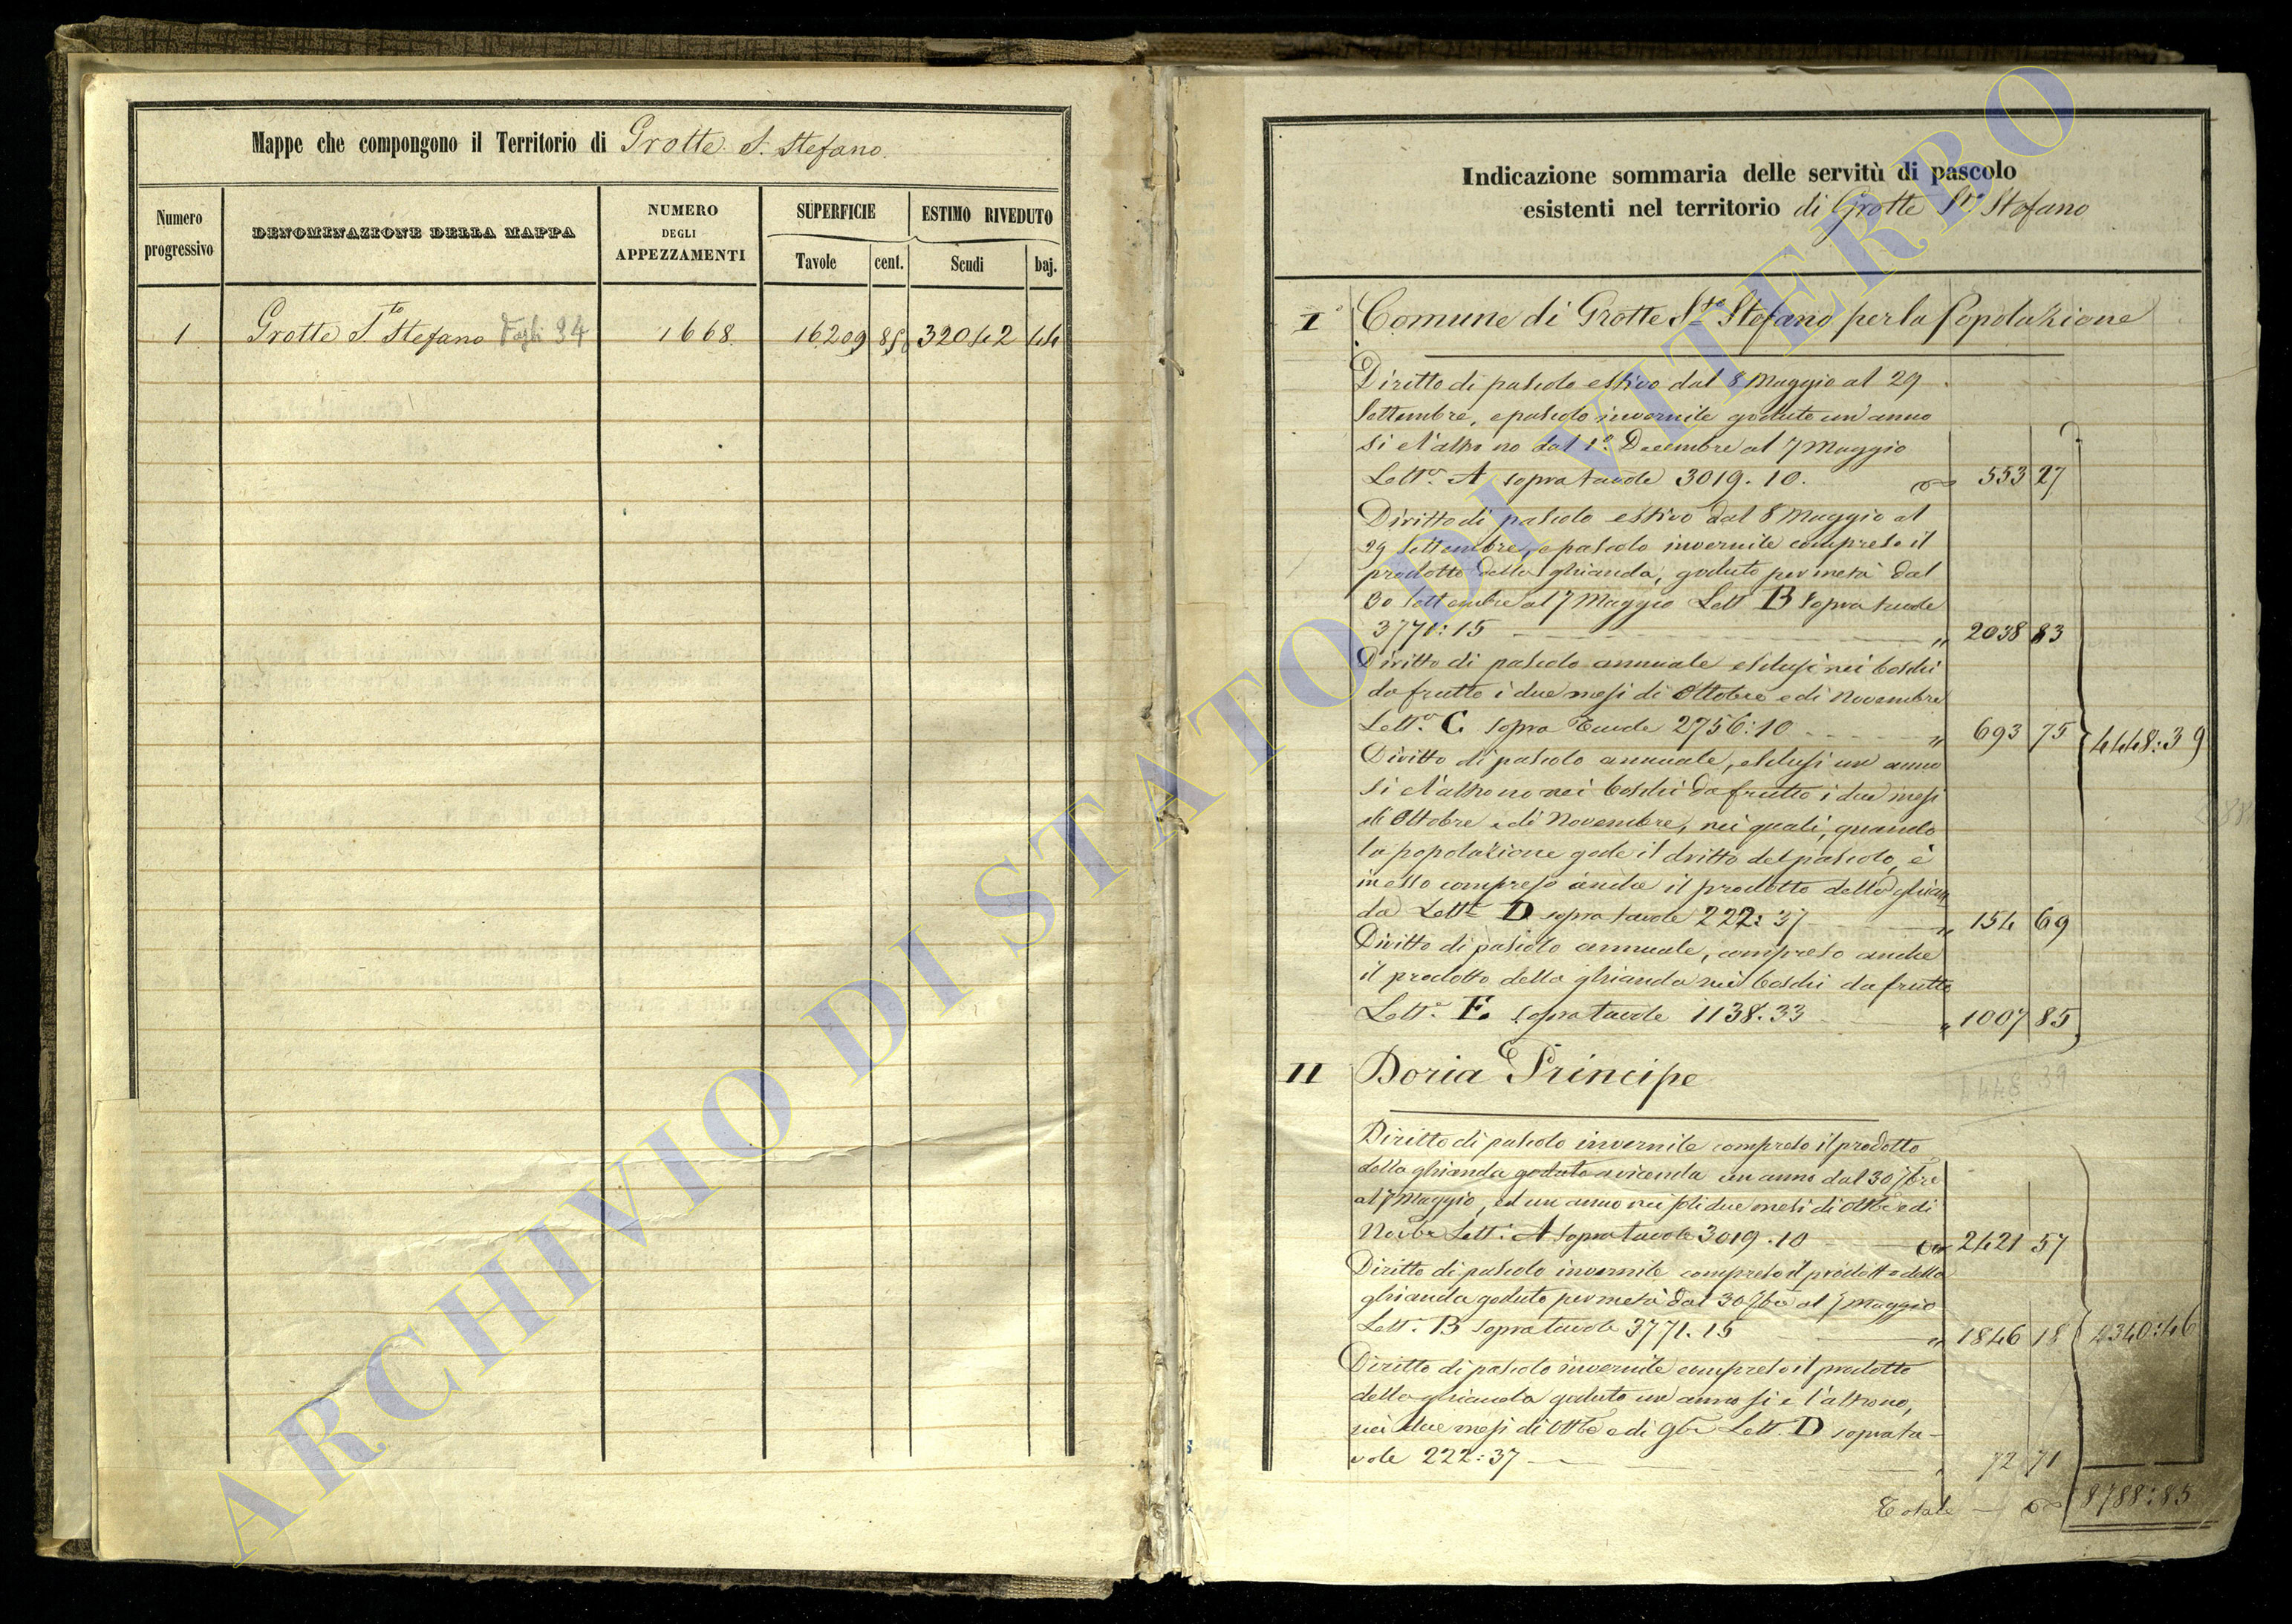 Mappe che compongono il Territorio di Grotte S. Stefano.
Numero progressivo
DENOMINAZIONE DELLA MAPPA
NUMERO DEGLI APPEZZAMENTI
SUPERFICIE
ESTIMO RIVEDUTO
Tavole cent. Scudi baj.
1 Grotte S.to Stefano Fogli 34 1668. 16209 85 32042 44
Indicazione sommaria delle servitù di pascolo
esistenti nel territorio di Grotte S.to Stefano
I° Comune di Grotte S.to Stefano per la Popolazione
Diritto di pascolo estivo dal 8 Maggio al 29
Settembre, e pascolo invernile goduto un'anno
si e l'altro no dal 1° Decembre al 7 Maggio
Lett.a A sopra tavole 3019.10. 553 27
Diritto di pascolo estivo dal 8 Maggio al
29 Settembre, e pascolo invernile compreso il
prodotto della ghianda, goduto per metà dal
30 Settembre al 7 Maggio Lett B sopra tavole
3771:15 " 2038 83
Diritto di pascolo annuale esclusi nei boschi
da frutto i due mesi di Ottobre e di Novembre
Lett.a C sopra Tavole 2756:10 " 693 75 4448:39
Diritto di pascolo annuale, esclusi un anno
si e l'altro no nei boschi da frutto i due mesi
di Ottobre e di Novembre, nei quali, quando
la popolazione gode il dritto del pascolo, è
in esso compreso anche il prodotto della ghian
da Lett.a D sopra tavole 222:37 " 154 69
Diritto di pascolo annuale, compreso anche
il prodotto della ghianda nei boschi da frutto
Lett.a E sopra tavole 1138.33 " 1007 85
4448 39
II Doria Principe
Diritto di pascolo invernile compreso il prodotto
della ghianda goduto a vicenda un anno dal 30 7bre
al 7 Maggio, ed un anno nei soli due mesi di Ottbe e di
Novbe Lett. A sopra tavole 3019.10 2421 57
Diritto di pascolo invernile compreso il prodotto della
ghianda goduto per metà dal 30 7be al 7 Maggio
Lett. B sopra tavole 3771.15 " 1846 18 4340:46
Diritto di pascolo invernile compreso il prodotto
della ghianda goduto un anno si e l'altro no,
nei due mesi di Ottbe e di 9be Lett. D sopra ta-
vole 222:37 72 71
Totale 8788:85
ARCHIVIO DI STATO DI VITERBO